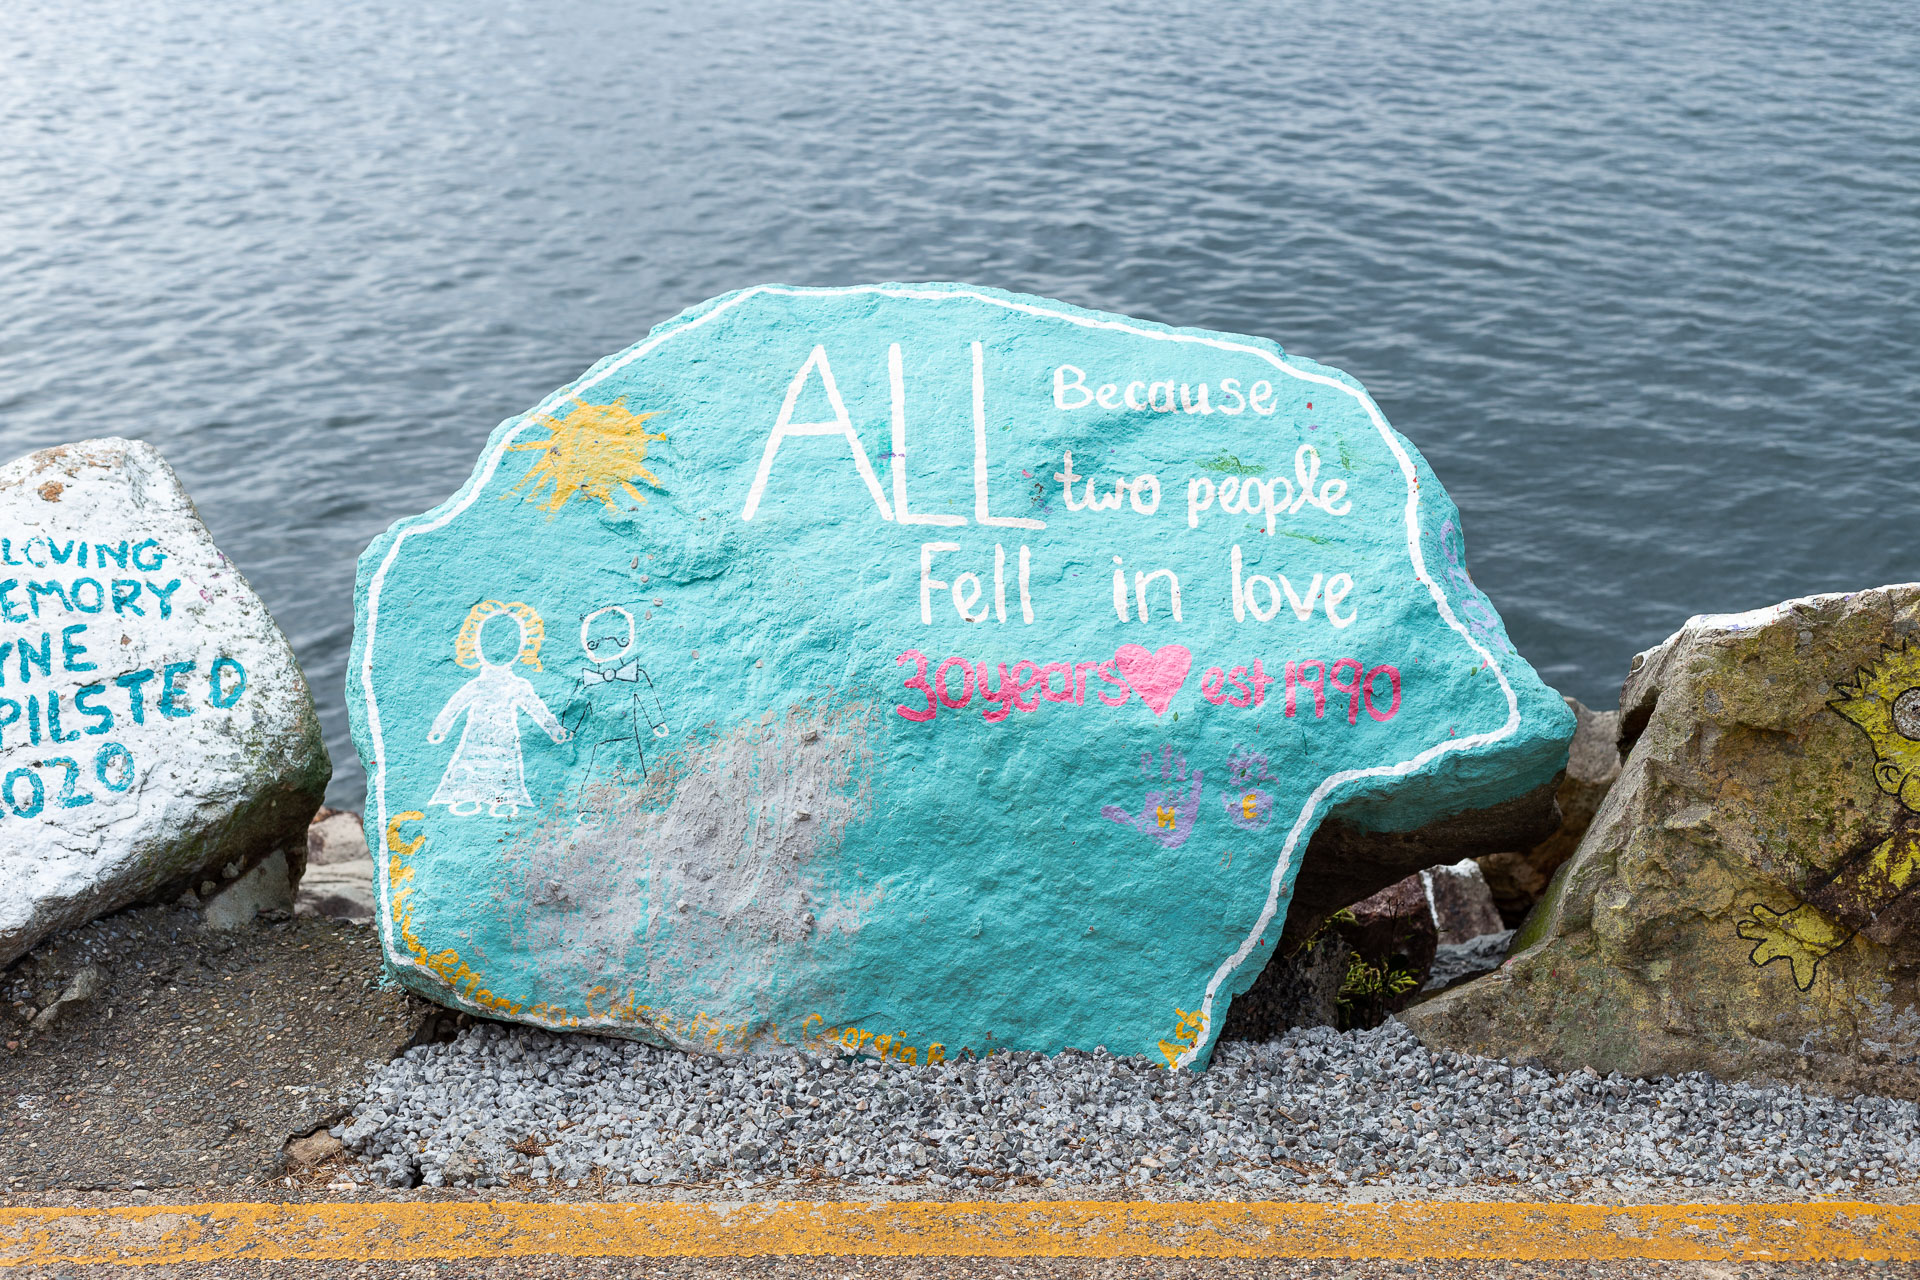 LOVING
EMORY
YNE
PILSTED
2020
ALL Because
two people
Fell in love
30years est 1990
H E
Georgia
Ash